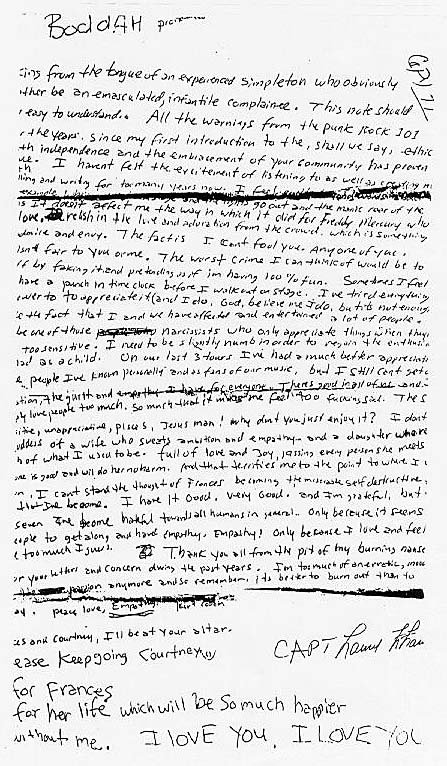 BoddAH
cing from the tongue of an experienced simpleton who obviously
ther be an emasculated, infantile complainee. This note should
easy to understand. All the warnings from the punk rock 101
the years. Since my first introduction to the, shall we say, ethic
th independence and the embracement of your community has proven
ue. I havent felt the excitement of listening to as well as creating m
and writing for too many years now. I feel
go out and the manic roar of the
doesnt affect me the way in which it did for Freddy Mercury who
love, relish in the love and adoration from the crowd. which is something
dmire and envy. The fact is I cant fool you. Any one of you.
isnt fair to you or me. The worst crime I can think of would be to
ff by faking it and pretending as if im having 100% fun. Sometimes I feel
have a punch in time clock before I walk out on stage. I've tried everything
ower to appreciate it (and I do, God, believe me I do, but its not enough)
the fact that I and we have affected and entertained a lot of people.
be one of those narcissists who only appreciate things when they
too sensitive. I need to be slightly numb in order to regain the enthusia
had as a child. On our last 3 tours I've had a much better appreciati
people I've known personally and as fans of our music, but I still cant get
the guilt and empathy I have for everyone. There's good in all of us and
ply love people too much. So much that it makes me feel too fucking sad. The s
itive, unappreciative, pisces, Jesus man! why dont you just enjoy it? I dont
oddess of a wife who sweats ambition and empathy. and a daughter who re
h of what I used to be. full of love and joy, kissing every person she meets
one is good and will do her no harm. And that terrifies me to the point to where I
n. I cant stand the thought of Frances becoming the miserable self destructive,
that Ive become. I have it Good. Very Good. and I'm grateful, but
seven Ive become hateful towards all humans in general. Only because it seems
eople to get along and have empathy. Empathy! Only because I love and feel
e too much I guess. Thank you all from the pit of my burning nause
or your letters and concern during the past years. I'm too much of an erratic, moo
passion anymore and so remember, its better to burn out than to
ay. peace love, Empathy. Kurt Cobain
es and Courtney, I'll be at your altar.
ease Keep going Courtney
for Frances
for her life which will be so much happier
without me. I LOVE YOU, I LOVE YOU
CAPT